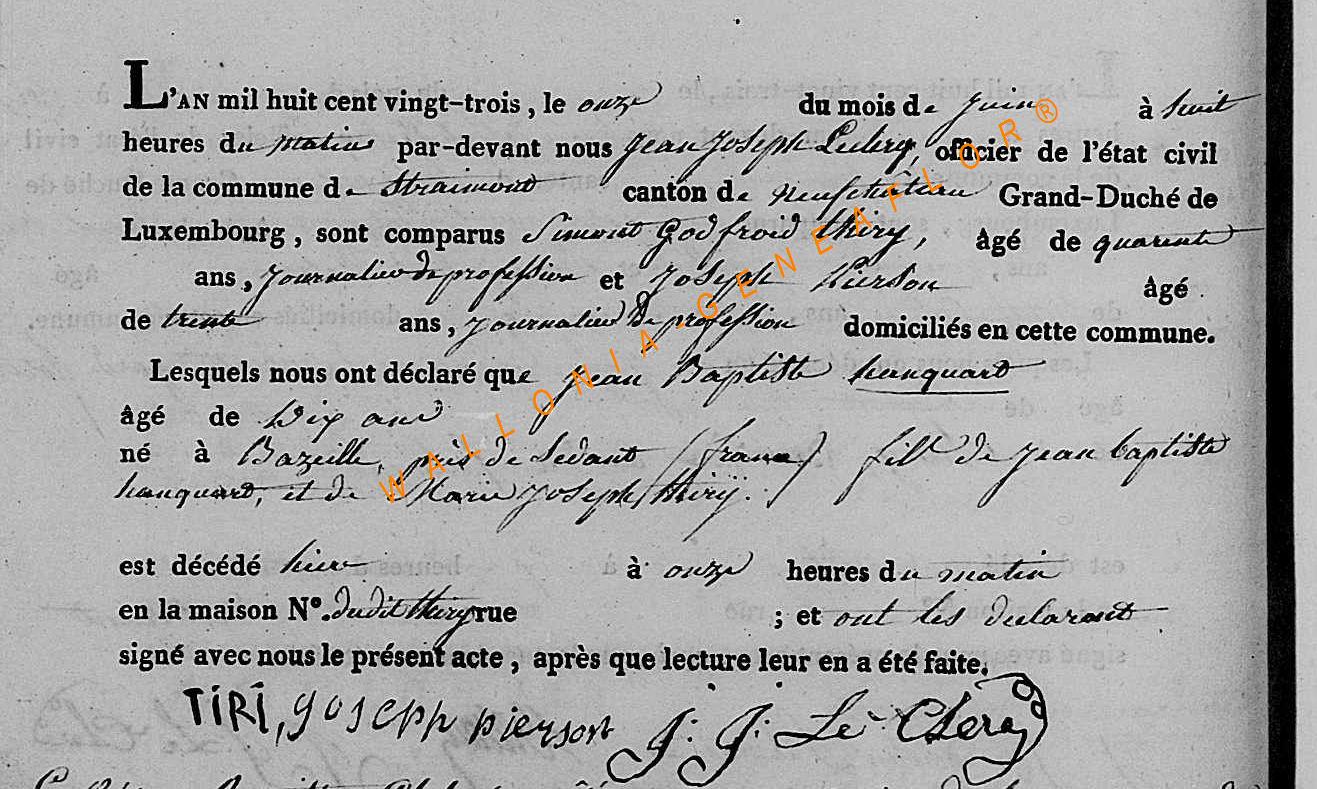 L'AN mil huit cent vingt-trois, le onze du mois de juin à huit
heures du matin par-devant nous Jean Joseph Leclerq, officier de l'état civil
de la commune de Straimont canton de neufchâteau Grand-Duché de
Luxembourg, sont comparus Simont Godfroid thiry, âgé de quarente
ans, journalier de profession et Joseph Pierson âgé
de trente ans, journalier de profession domiciliés en cette commune.
Lesquels nous ont déclaré que jean Baptiste hanquart
âgé de Dix ans
né à Bazeille, près de Sedant (france) fils de jean baptiste
hanquart, et de Marie Joseph thirÿ.
est décédé hier à onze heures du matin
en la maison N°. dudit thiry rue ; et ont les declarants
signé avec nous le présent acte, après que lecture leur en a été faite.
TIRI, joseph pierson J: J: Le Clerq
WALLONIA.GENEAFLOR®